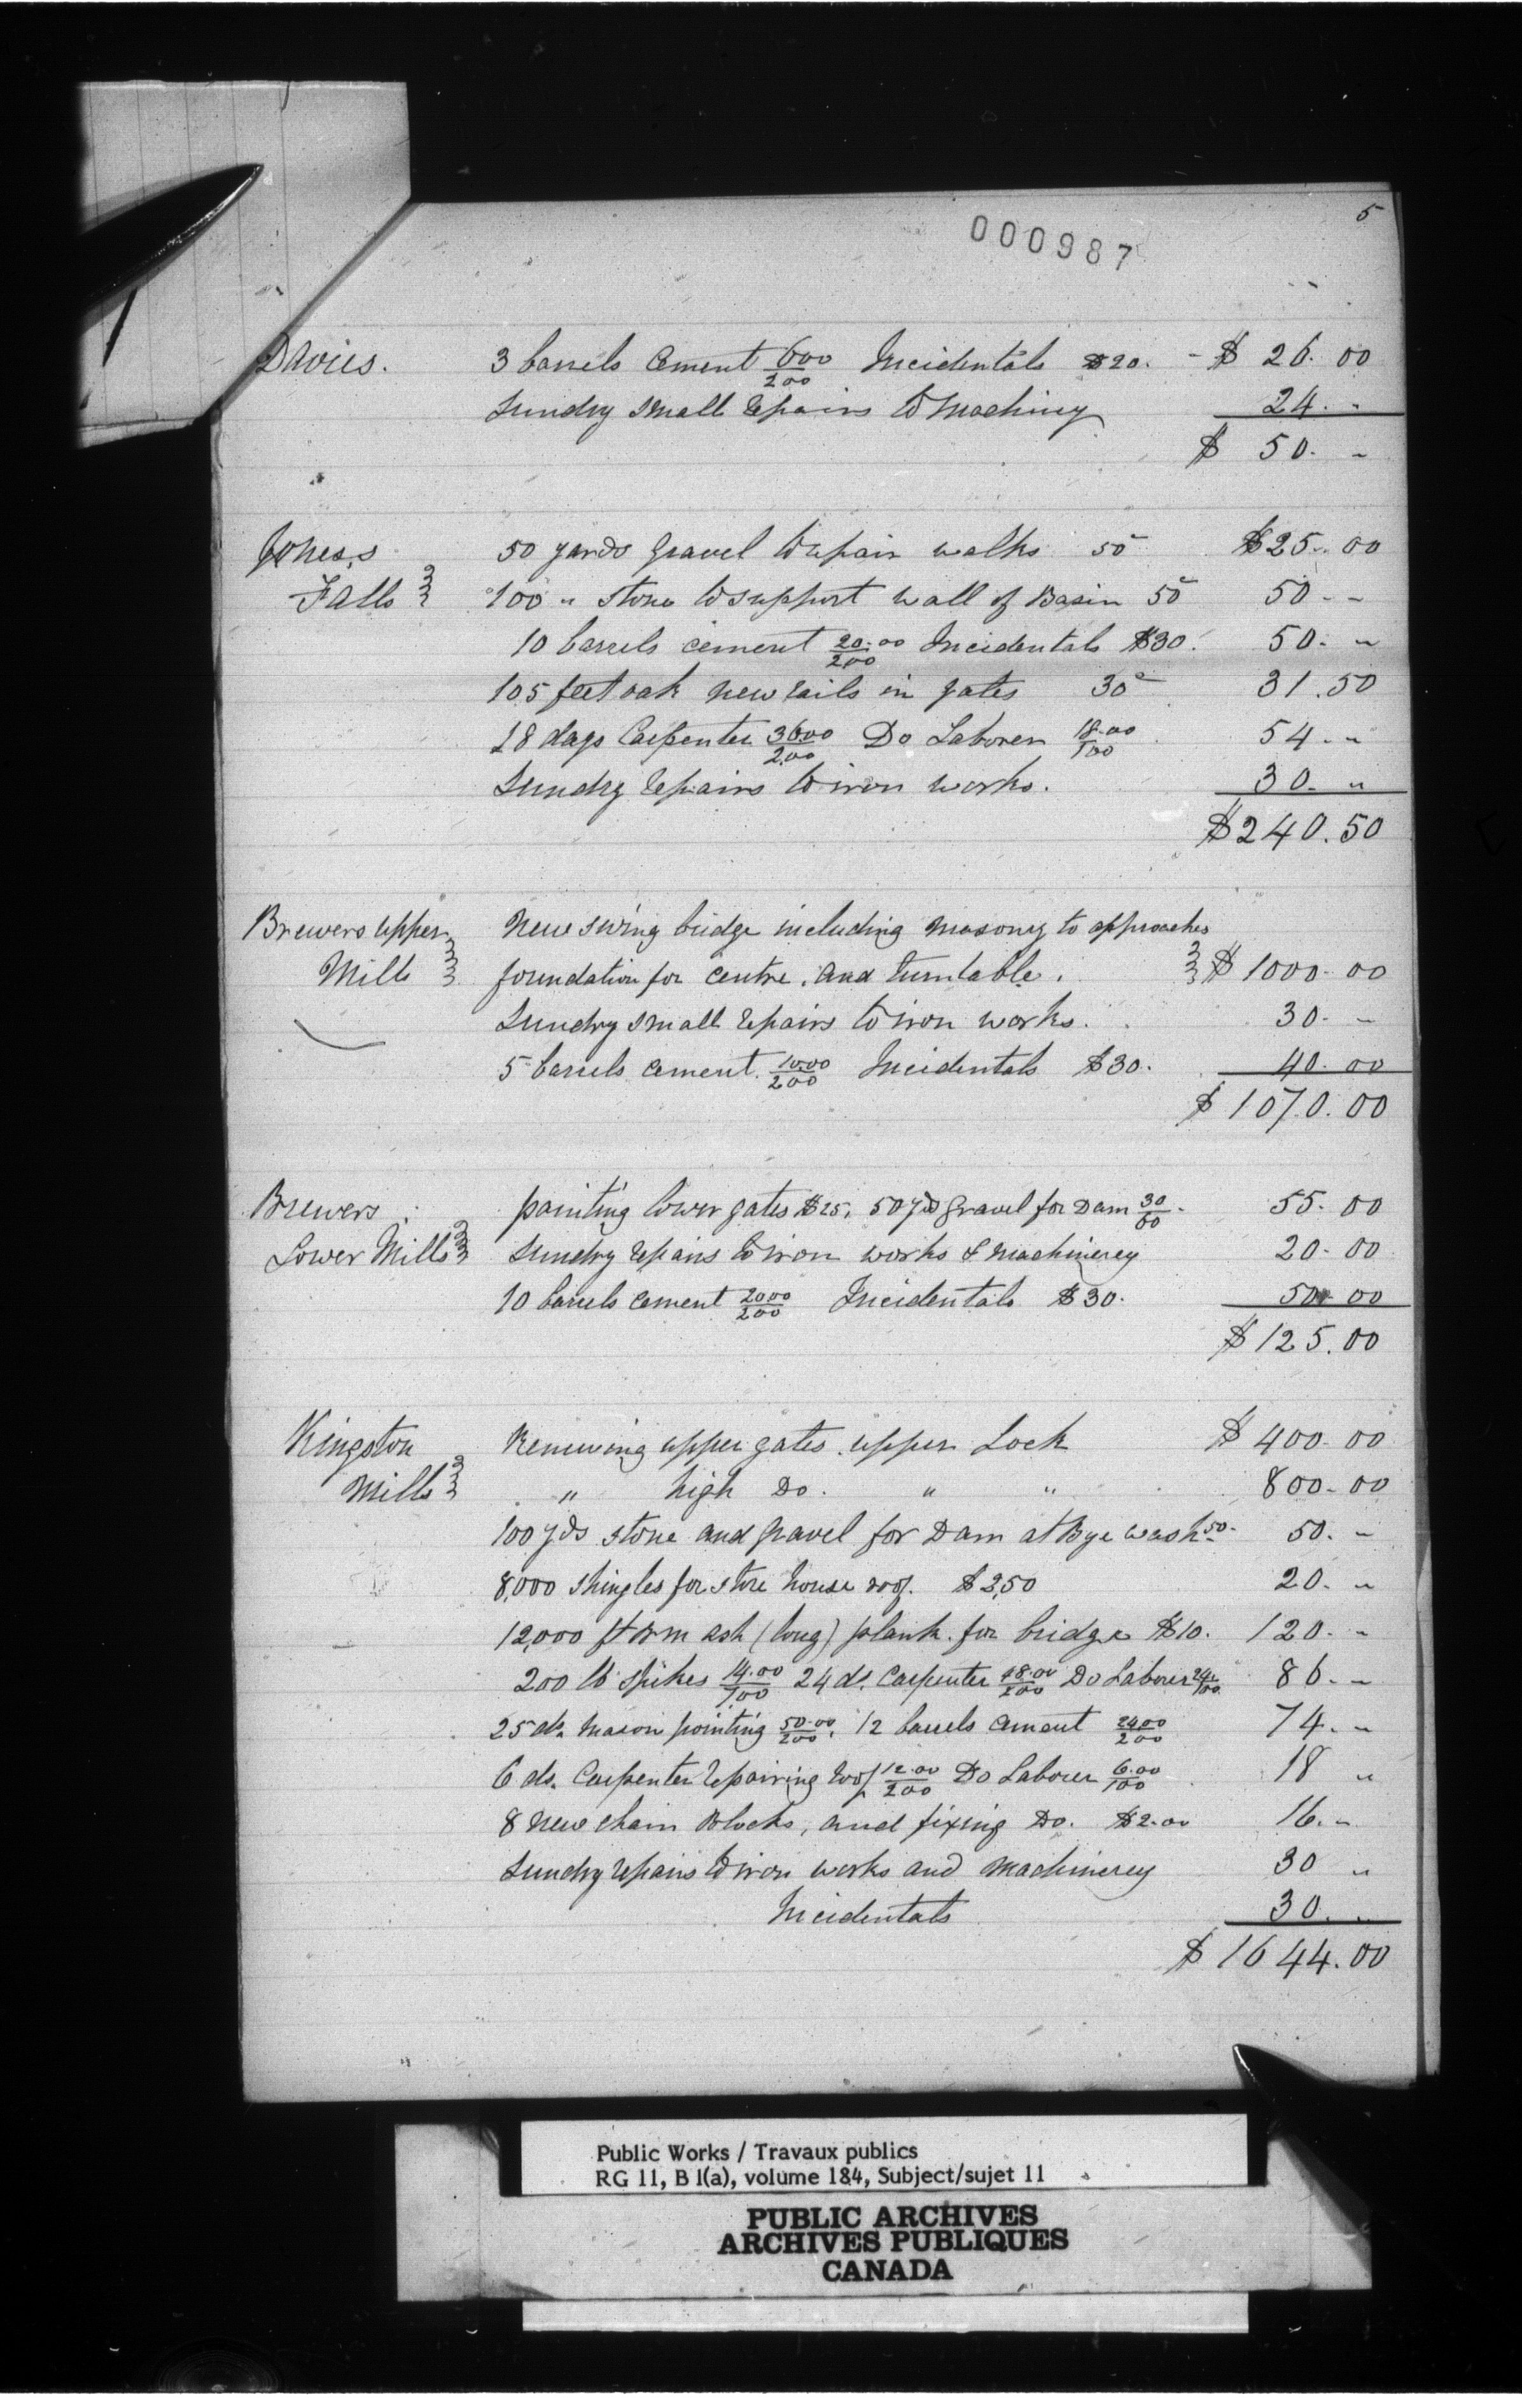 5
000987
Davies. 3 barrels Cement 6.00/2.00 Incidentals $20. - $ 26.00
Sundry small repairs to Machiny 24. "
$ 50. "
Jones,s 50 yards gravel to repair walks 50 $25.00
Falls 100 " stone to support wall of Basin 50 50 - "
10 barrels cement 20.00/2.00 Incidentals $30. 50. "
105 feet oak new rails in gates 30 31.50
18 days Carpenter 36.00/2.00 Do Laborer 18.00/1.00 54 - "
Sundry repairs to iron works. 30. "
$240.50
Brewers upper New swing bridge including masonry to approaches
Mills foundation for centre, and turntable. $ 1000.00
Sundry small repairs to iron works. 30. "
5 barrels cement 10.00/2.00 Incidentals $30. 40.00
$ 1070.00
Brewers painting lower gates $25, 50 yds gravel for Dam 30/60. 55.00
Lower Mills Sundry repairs to iron works & Machinerey 20.00
10 barrels cement 20.00/2.00 Incidentals $30. 50.00
$ 125.00
Kingston Renewing upper gates upper Lock $ 400.00
Mills " high Do. " " 800.00
100 yds stone and gravel for Dam at Bye wash 50. 50. "
8,000 shingles for store house roof. $2,50 20. "
12,000 ft BM ash (long) plank for bridge $10. 120. "
200 lb spikes 14.00/7.00 24 ds. Carpenter 48.00/2.00 Do Laborer 24/1.00 86. "
25 ds. Mason pointing 50.00/2.00. 12 barrels Cement 24.00/2.00 74. "
6 ds. Carpenter repairing roof 12.00/2.00 Do Laborer 6.00/1.00 18 "
8 New chain Blocks, and fixing Do. $2.00 16. "
Sundry repairs to iron works and Machinerey 30 "
Incidentals 30. "
$ 1644.00
Public Works / Travaux publics
RG 11, B 1(a), volume 184, Subject/sujet 11
PUBLIC ARCHIVES
ARCHIVES PUBLIQUES
CANADA